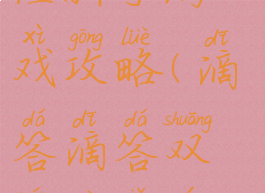 xì gōng lüè dī
戏攻略(滴
dá dī dá shuāng
答滴答双